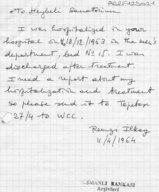 To Heybeli Sanatorium
I was hospitalized in your
hospital on 18/12/1963 in the men's
department, bed No 15. I was
discharged after treatment.
I need a report about my
hospitalization and treatment
so please send it to Tophan
27/4 to WCC.
Remzi Ilkay
11/4/1964
OSMANLI BANKASI
Arşivleri